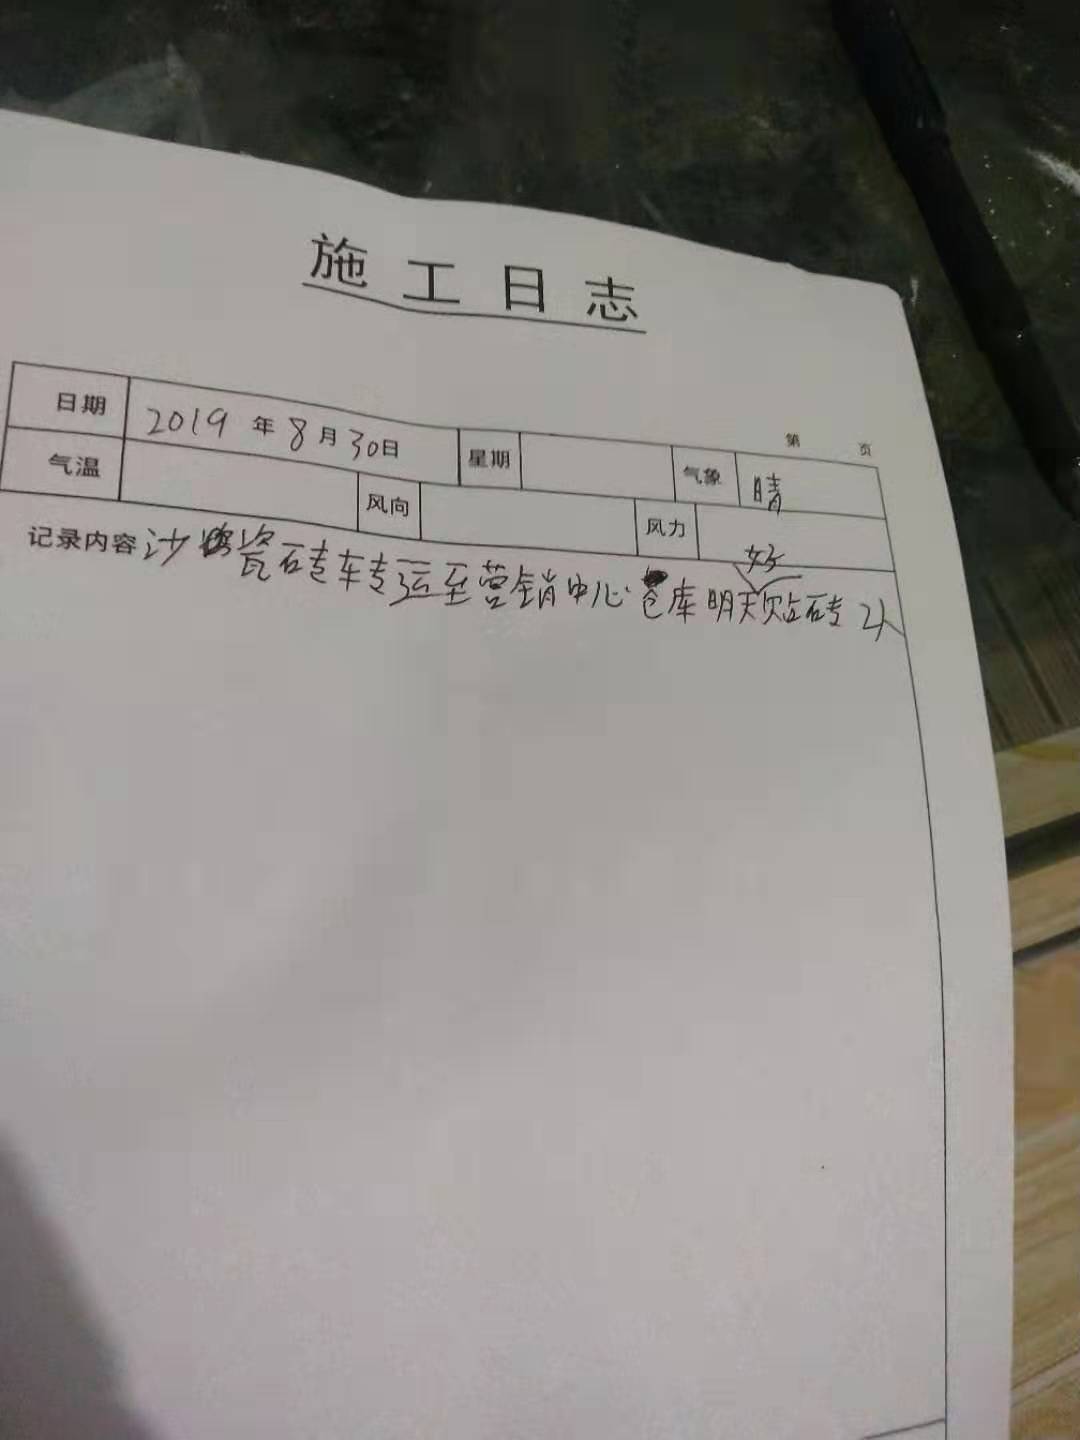 施工日志
第 页
日期 2019年8月30日 星期 气象 晴
气温 风向 风力
好
记录内容 沙 瓷砖车专运至营销中心仓库明天贴砖2人